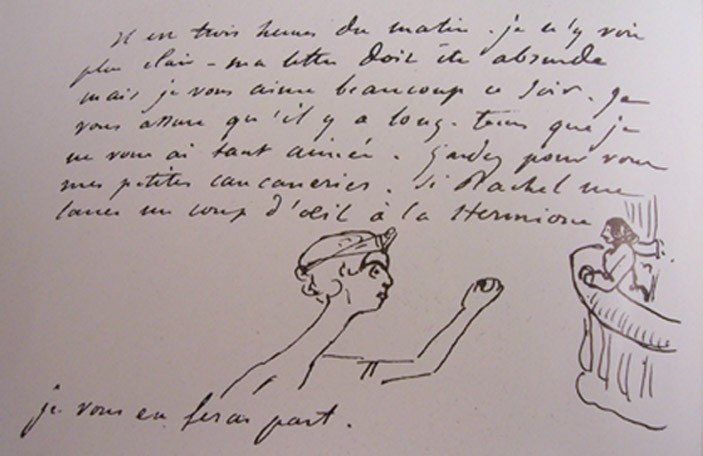 Il est trois heures du matin. je n'y vois
plus clair - ma lettre doit être absurde
mais je vous aime beaucoup ce soir. Je
vous assure qu'il y a long-tems que je
ne vous ai tant aimée. Gardez pour vous
mes petites cancaneries. Si Rachel me
lance un coup d'œil à la Hermione
je vous en ferai part.